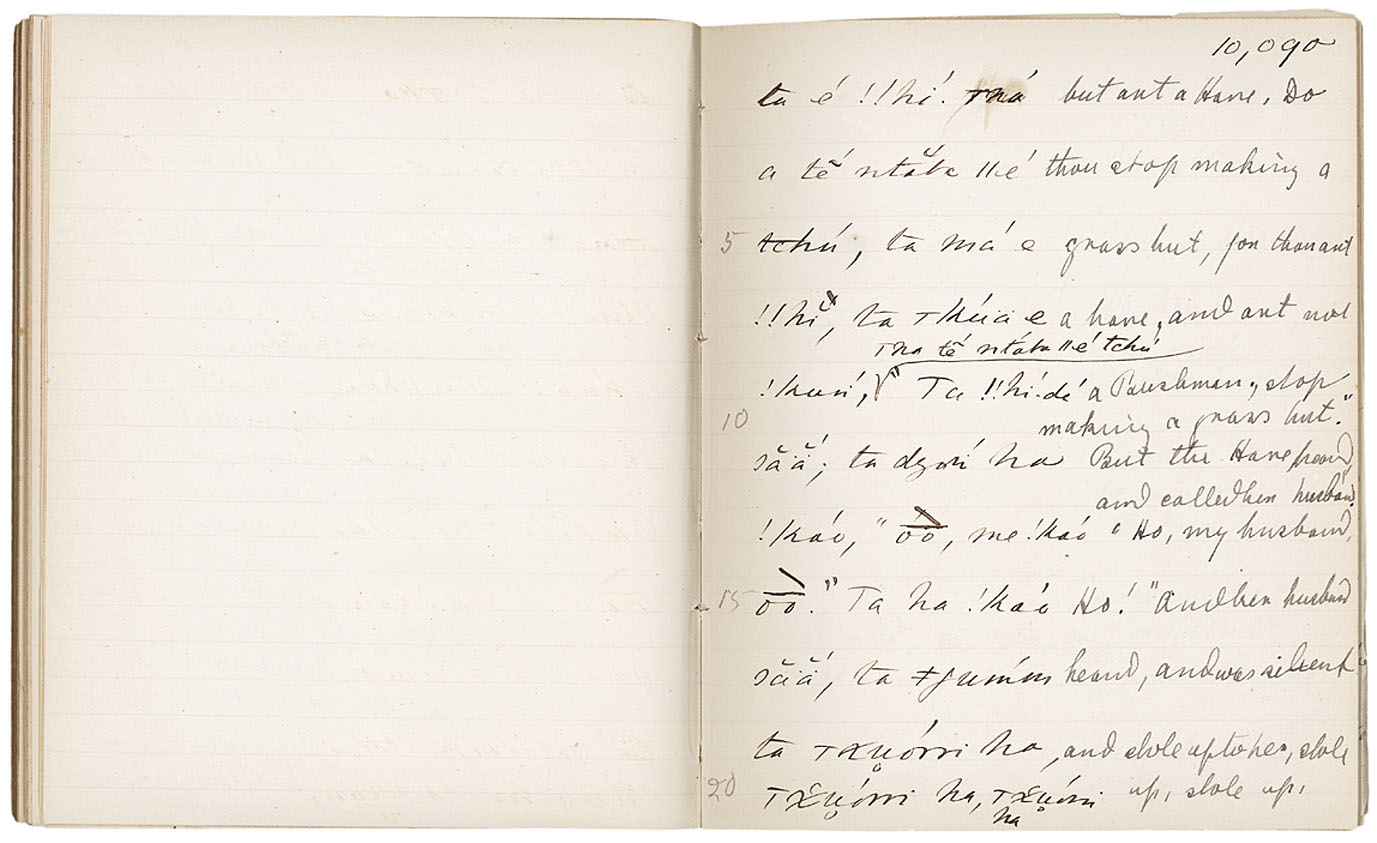 10,090
ta é !!hí. Tná but art a Hare. Do
a tě́ ntǎba ||é thou stop making a
5 tchú, ta má e grass hut, for thou art
!!hí, ta Tkúä e a hare, and art not
Tna tě́ ntába ||é tchú
!kuṅ́, " Ta !!hí-dé a Bushman; stop
10 making a grass hut."
sǎ̈ǎ̈́; ta dzoṅ́ ha But the Hare heard,
and called her husband.
!káó, " óō, me !káó " Ho, my husband,
15 óō." Ta ha !káó Ho! " And her husband
sǎ̈ǎ̈́, ta ǂgumḿ heard, and was silent
ta Txuórri ha , and stole up to her, stole
20 Txuórri ha, Txuórri up, stole up,
ha